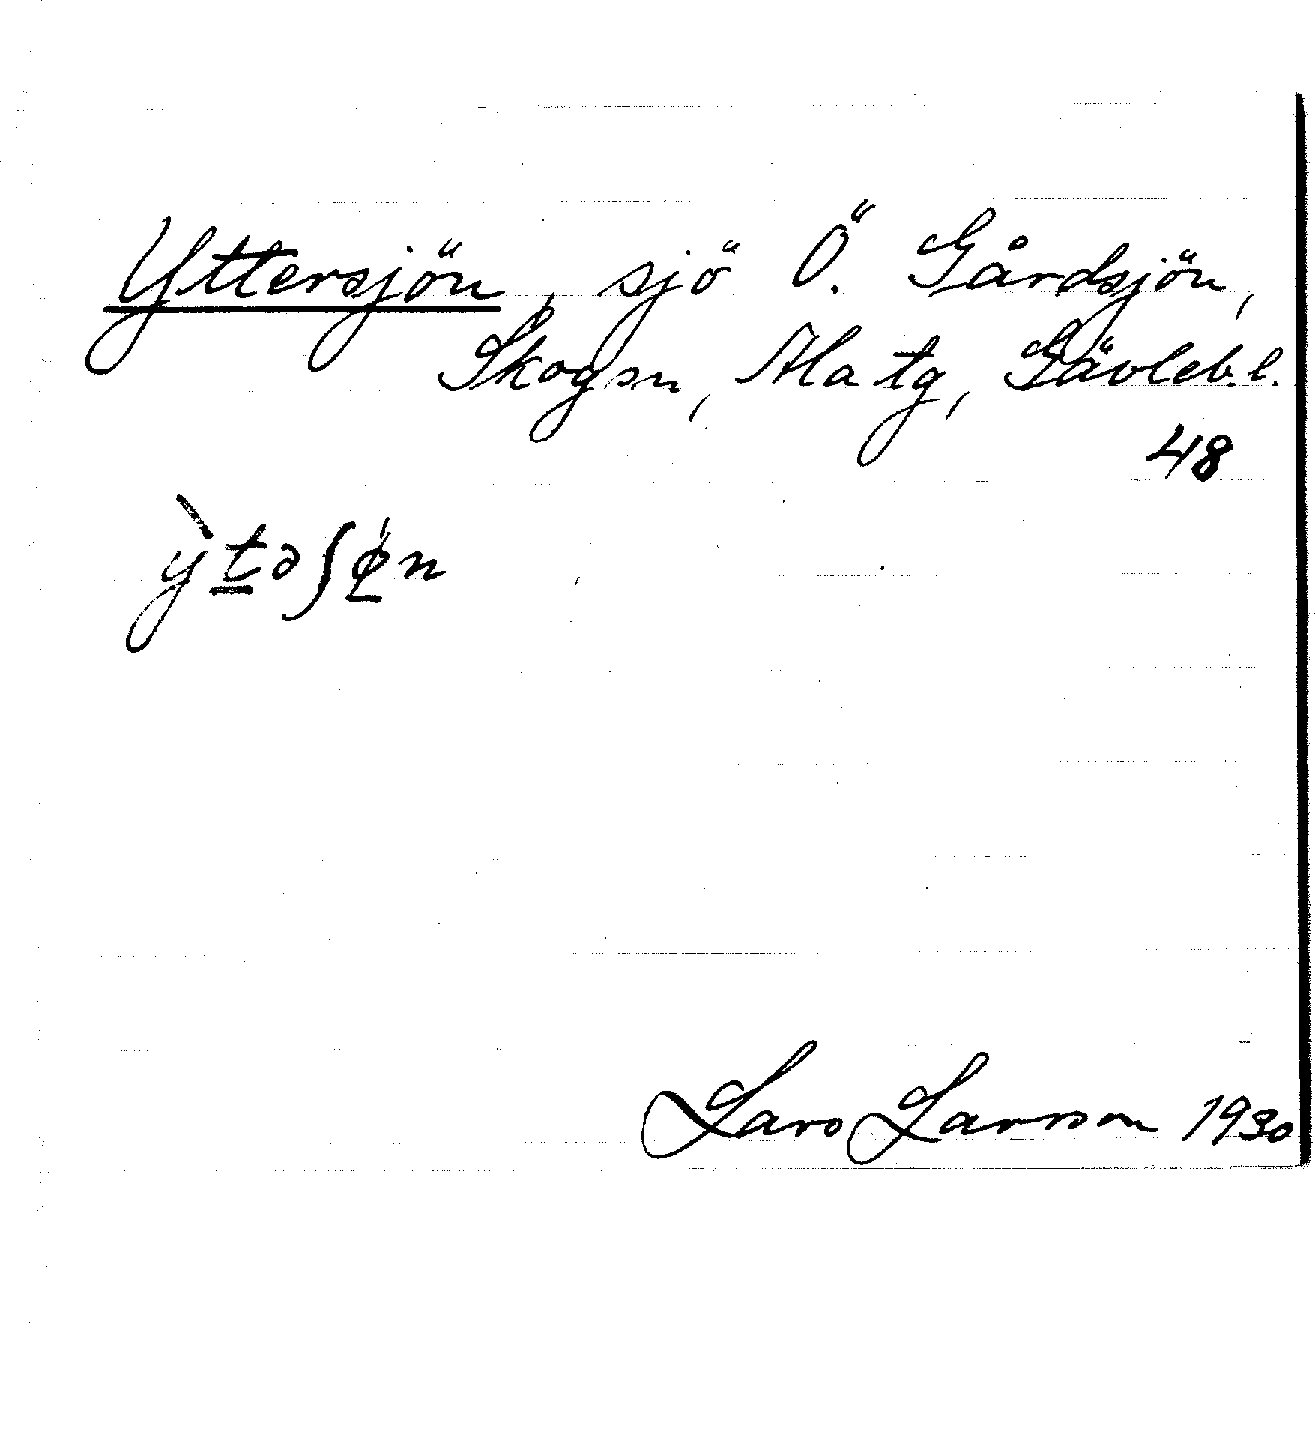 Yttersjön, sjö Ö. Gårdsjön,
Skogsn, Ala tg, Gävleb. l.
48
ỳtəʃøn
Lars Larsson 1930